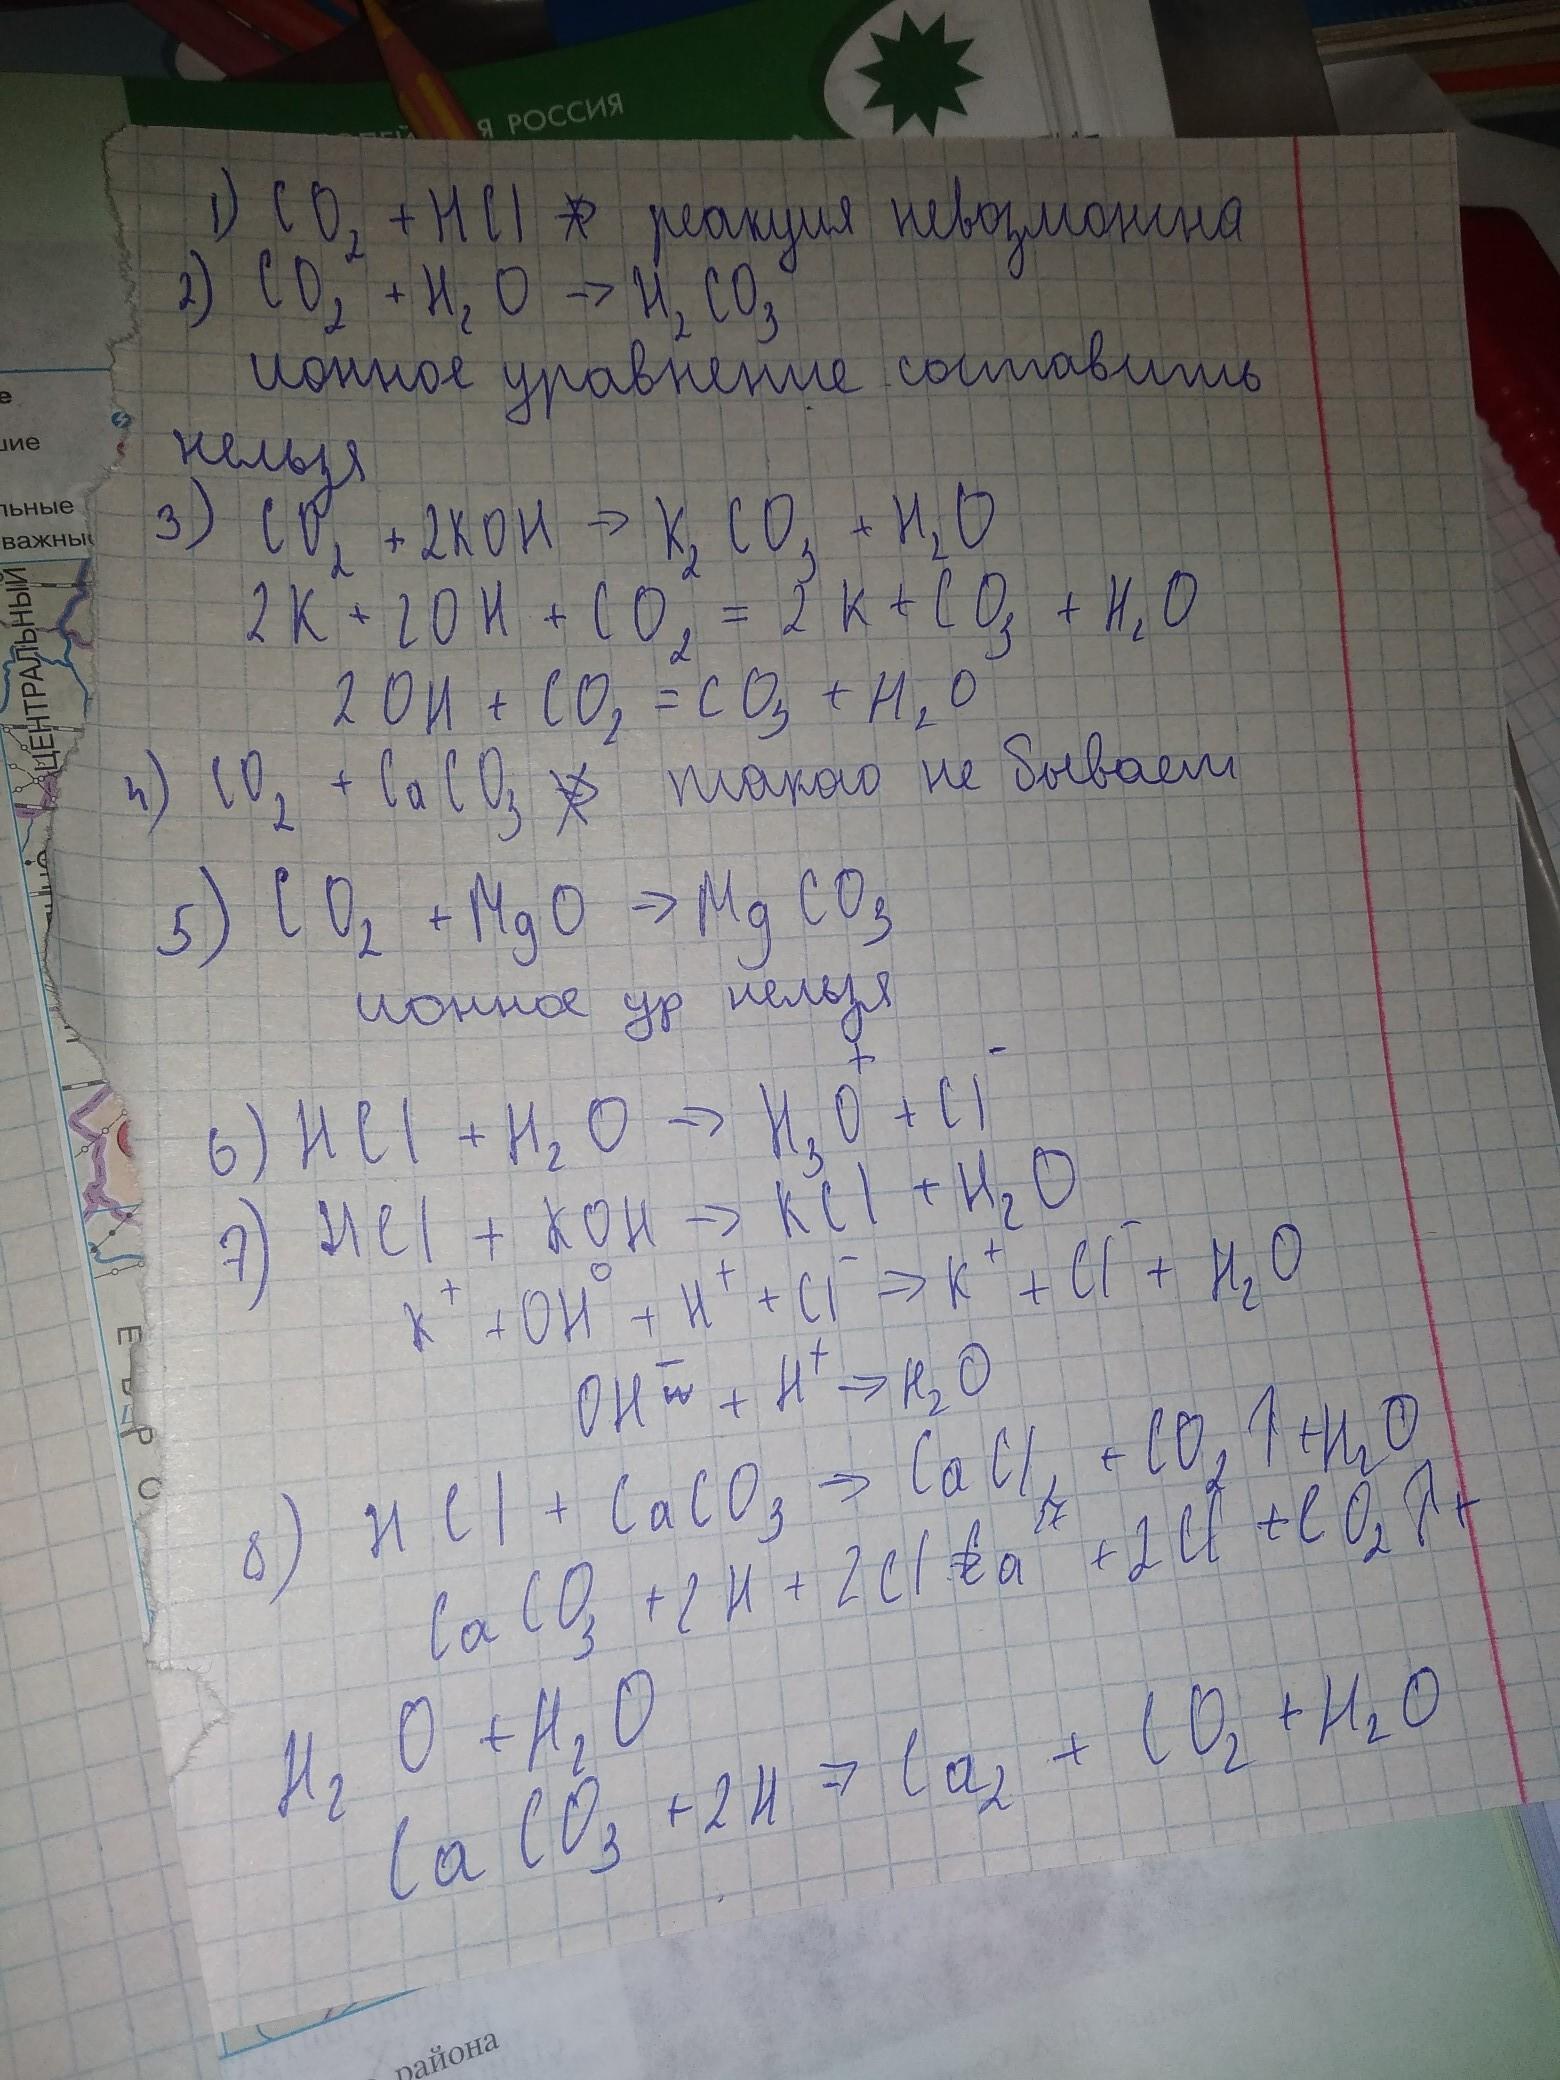 Я РОССИЯ
1) CO2 + HCl ↛ реакция невозможна
2) CO2 + H2O → H2CO3
ионное уравнение составить
нельзя
3) CO2 + 2KOH → K2CO3 + H2O
2K + 2OH + CO2 = 2K + CO3 + H2O
2OH + CO2 = CO3 + H2O
4) CO2 + CaCO3 ↛ такого не бывает
5) CO2 + MgO → MgCO3
ионное ур нельзя
6) HCl + H2O → H3O+ + Cl-
7) HCl + KOH → KCl + H2O
K+ + OH° + H+ + Cl- => K+ + Cl- + H2O
OH- + H+ → H2O
8) HCl + CaCO3 → CaCl2 + CO2↑ + H2O
CaCO3 + 2H + 2Cl Ca + 2Cl + CO2↑ +
H2O + H2O
CaCO3 + 2H => Ca2 + CO2 + H2O
е
шие
льные
важны
ЦЕНТРАЛЬНЫЙ
района